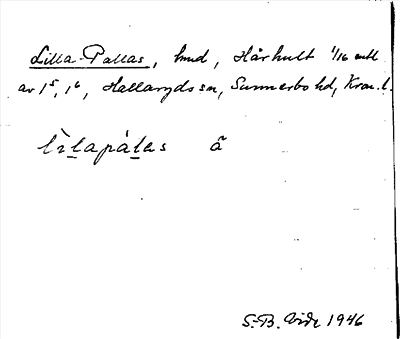 Lilla Pallas, hmd, Hårhult 1/16 mtl
av 1⁵, 1⁶, Hallaryds sn, Sunnerbo hd, Kron. l.
lìḻapàḻas ã
S.-B. Vide 1946